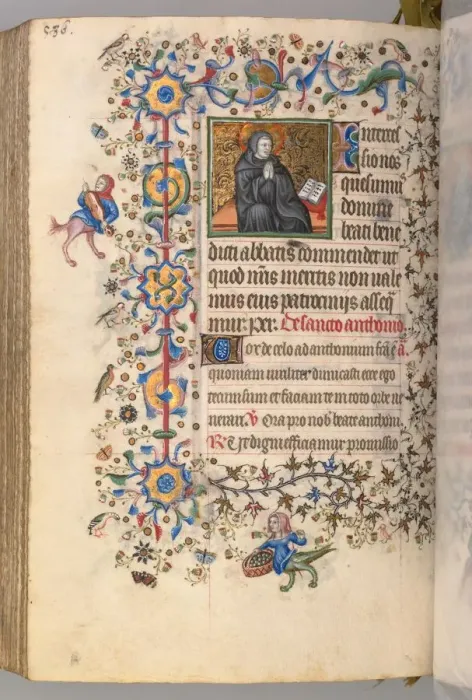 536.
Interces
sio nos
quesumus
domine
beati bene
dicti abbatis commendet ut
quod nris meritis non uale
mus eius patrocinijs asseq
mur. Per. De sancto anthonio.
Vox de celo ad anthonium fca e a.
quoniam uiriliter dimicasti ecce ego
tecum sum et faciam te in toto orbe no
minari. V Ora pro nob beate anthoni.
R Ut digni efficiamur promissio